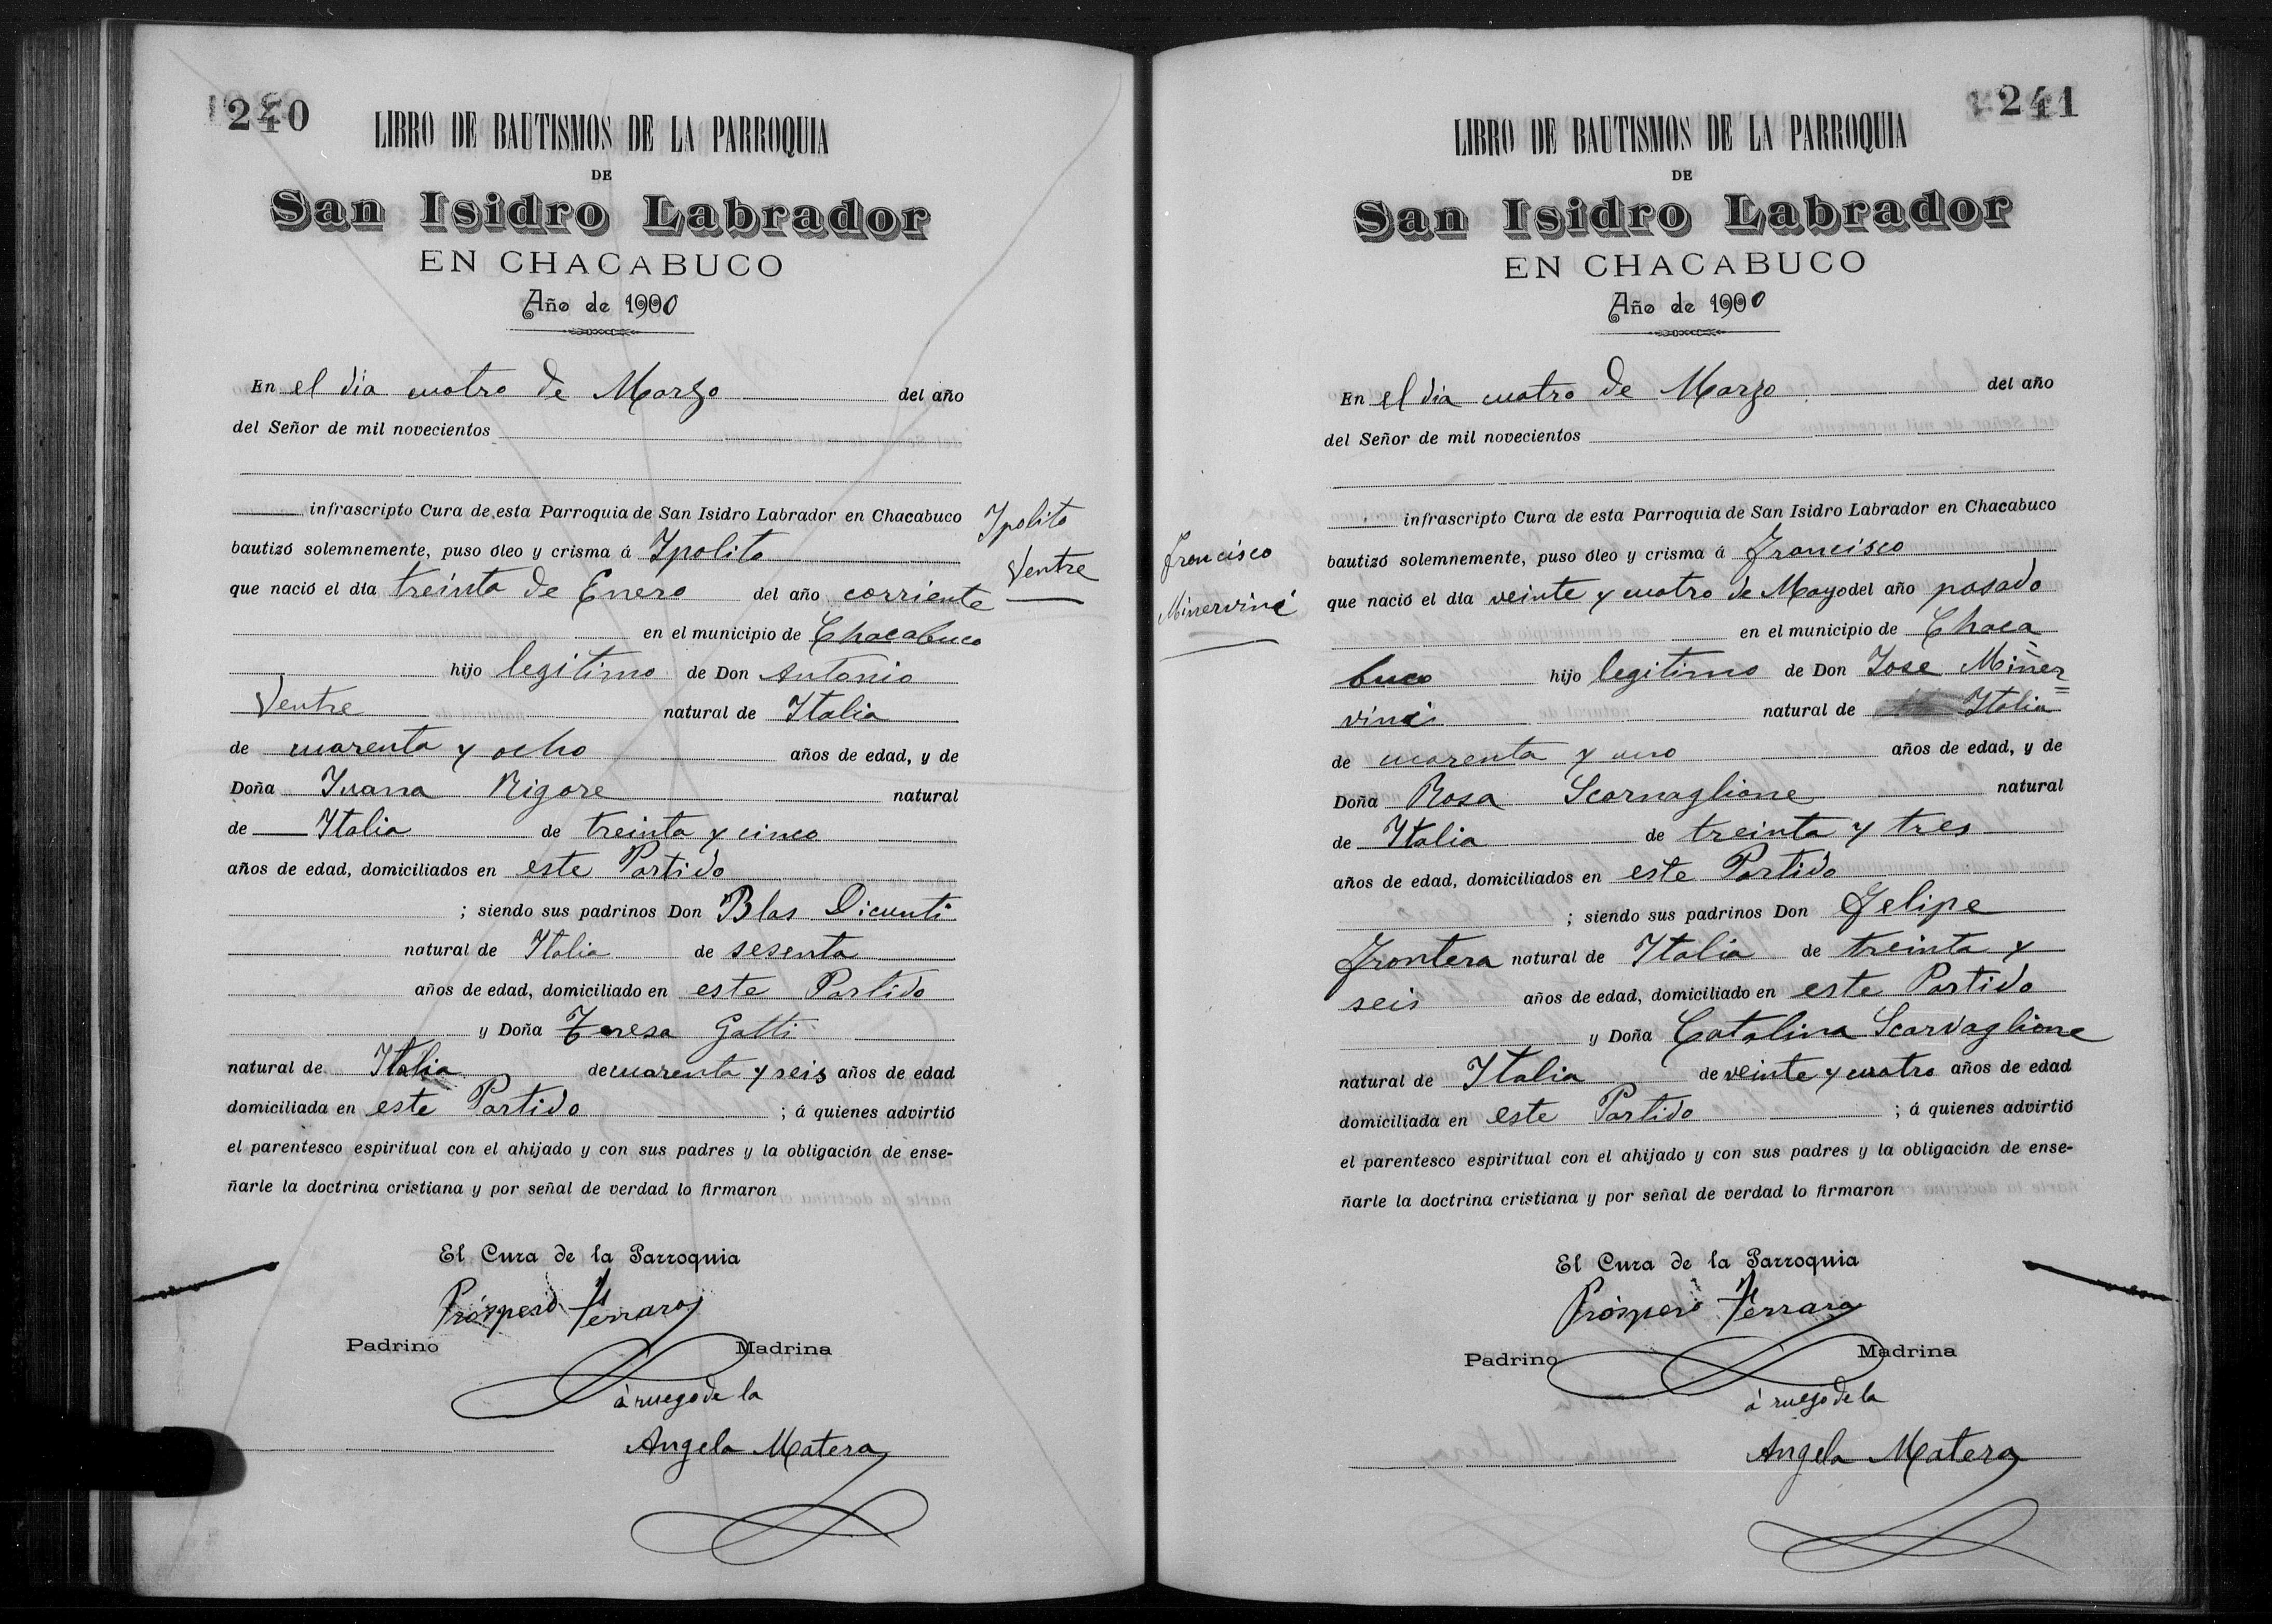 240
LIBRO DE BAUTISMOS DE LA PARROQUIA
DE
San Isidro Labrador
EN CHACABUCO
Año de 1900
En el dia cuatro de Marzo del año
del Señor de mil novecientos
infrascripto Cura de esta Parroquia de San Isidro Labrador en Chacabuco
bautizó solemnemente, puso óleo y crisma á Ypolito
Ypolito
Ventre
que nació el dia treinta de Enero del año corriente
en el municipio de Chacabuco
hijo legitimo de Don Antonio
Ventre natural de Italia
de cuarenta y ocho años de edad, y de
Doña Juana Rigore natural
de Italia de treinta y cinco
años de edad, domiciliados en este Partido
; siendo sus padrinos Don Blas Dicunti
natural de Italia de sesenta
años de edad, domiciliado en este Partido
y Doña Teresa Gatti
natural de Italia de cuarenta y seis años de edad
domiciliada en este Partido ; á quienes advirtió
el parentesco espiritual con el ahijado y con sus padres y la obligación de ense-
ñarle la doctrina cristiana y por señal de verdad lo firmaron
El Cura de la Parroquia
Próspero Ferrara
Padrino Madrina
á ruego de la
Angela Matera
241
LIBRO DE BAUTISMOS DE LA PARROQUIA
DE
San Isidro Labrador
EN CHACABUCO
Año de 1900
En el dia cuatro de Marzo del año
del Señor de mil novecientos
infrascripto Cura de esta Parroquia de San Isidro Labrador en Chacabuco
Francisco
Minervini
bautizó solemnemente, puso óleo y crisma á Francisco
que nació el dia veinte y cuatro de Mayo del año pasado
en el municipio de Chaca
buco hijo legitimo de Don Jose Miner=
vini natural de Italia
de cuarenta y uno años de edad, y de
Doña Rosa Scornaglione natural
de Italia de treinta y tres
años de edad, domiciliados en este Partido
; siendo sus padrinos Don Felipe
Frontera natural de Italia de treinta y
seis años de edad, domiciliado en este Partido
y Doña Catalina Scarvaglione
natural de Italia de veinte y cuatro años de edad
domiciliada en este Partido ; á quienes advirtió
el parentesco espiritual con el ahijado y con sus padres y la obligación de ense-
ñarle la doctrina cristiana y por señal de verdad lo firmaron
El Cura de la Parroquia
Próspero Ferrara
Padrino Madrina
á ruego de la
Angela Matera